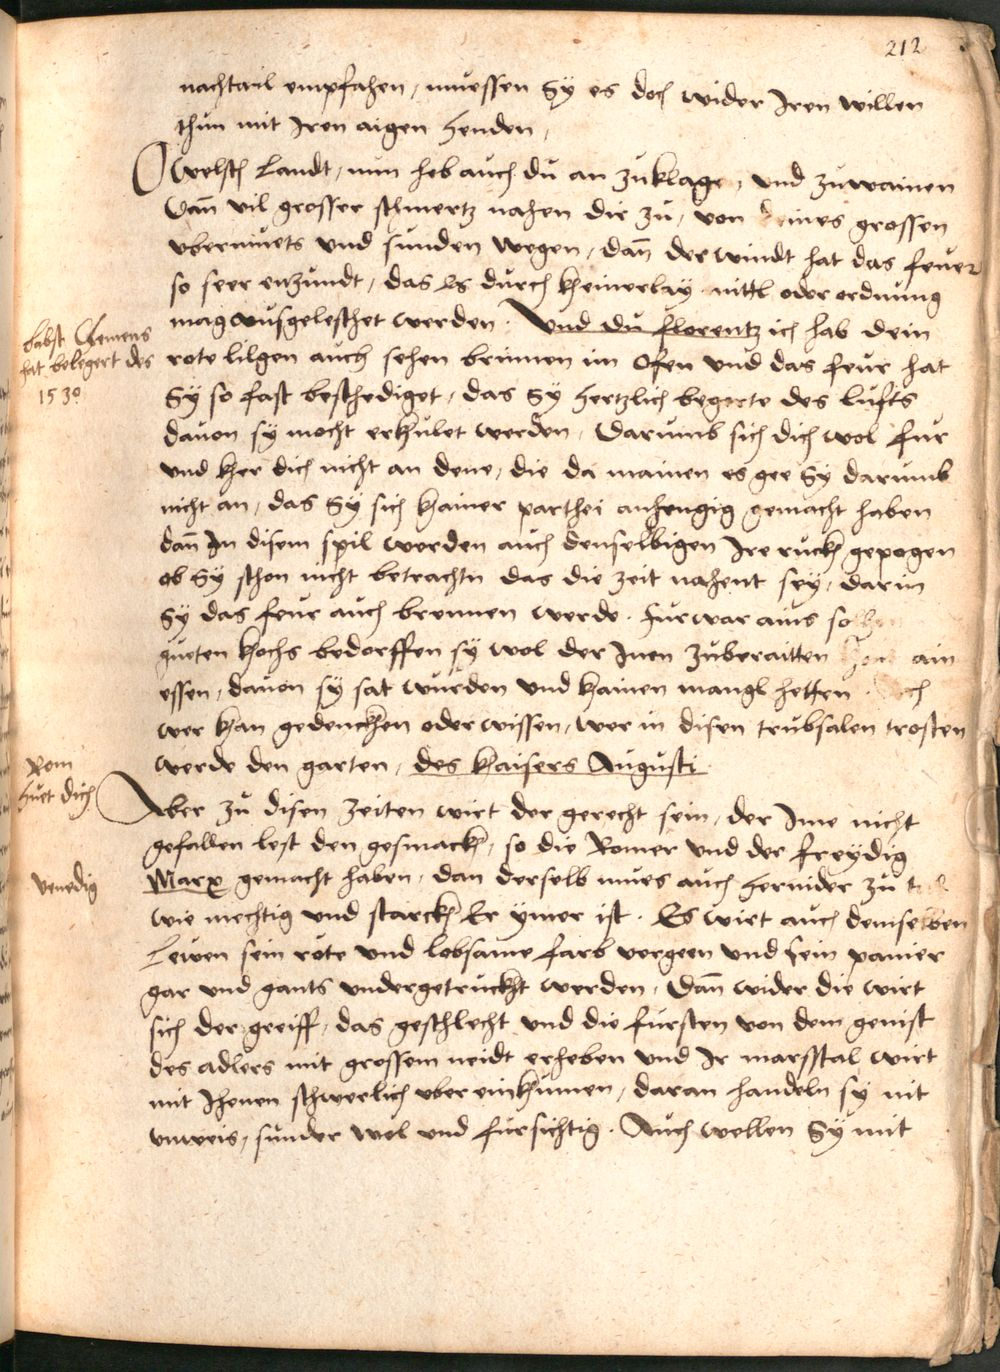 212
nachtail empfahen, muessen Sy es doch wider Iren willen
thun mit Iren aigen henden,
O welsch Landt, nun heb auch du an zuklage, und zuwainen
Dañ vil grosser schmertz nahen dir zu, von deines grossen
ubermuets und sunden wegen, dañ der windt hat das feuer
so seer enzundt, das Es durch kheinerlay mittl oder ordnung
mag ausgeleschet werden. Und du florentz ich hab dein
rote lilgen auch sehen brinnen im Ofen und das feur hat
Sy so fast beschediget, das Sy hertzlich begerte des lufts
davon sy mocht erkhulet werden, Darumb sich dich wol fur
und kher dich nicht an dene, die da mainen es gee Sy darumb
nicht an, das Sy sich khainer parthei anhengig gemacht haben
dañ In disem spil werden auch denselbigen Ire ruckh gepogen
ob Sy schon nicht betrachtn das die zeit nahent sey, darin
Sy das feur auch brennen werde. furwar ains solhen
gueten khochs bedorffen sy wol der Inen zuberaitten ain
essen, davon sy sat wurden und khainen mangl hetten.
wer khan gedenckhen oder wissen, wer in disen trubsalen trosten
werde den garten, des khaisers Augusti
Aber zu disen zeiten wirt der gerecht sein, der Ime nicht
gefallen lest den gesmackh, so die Romer und der freydig
Marx gemacht haben, dan derselb mues auch hernider zu
wie mechtig und starckh Er ymer ist. Es wirt auch demselben
Lewen sein rote und lobsame farb vergeen und sein panier
gar und gants undergetruckht werden, Dañ wider die wirt
sich der greiff, das geschlecht und die fursten von dem genist
des adlers mit grossem neidt erheben und Ir marsstal wirt
mit Ihenen schwerlich uber einkhumen, daran handeln sy nit
unweis, sunder wol und fursichtig. Auch wellen Sy mit
babst Clemens
hat belegert des
1530
Rom
huet dich
Venedig